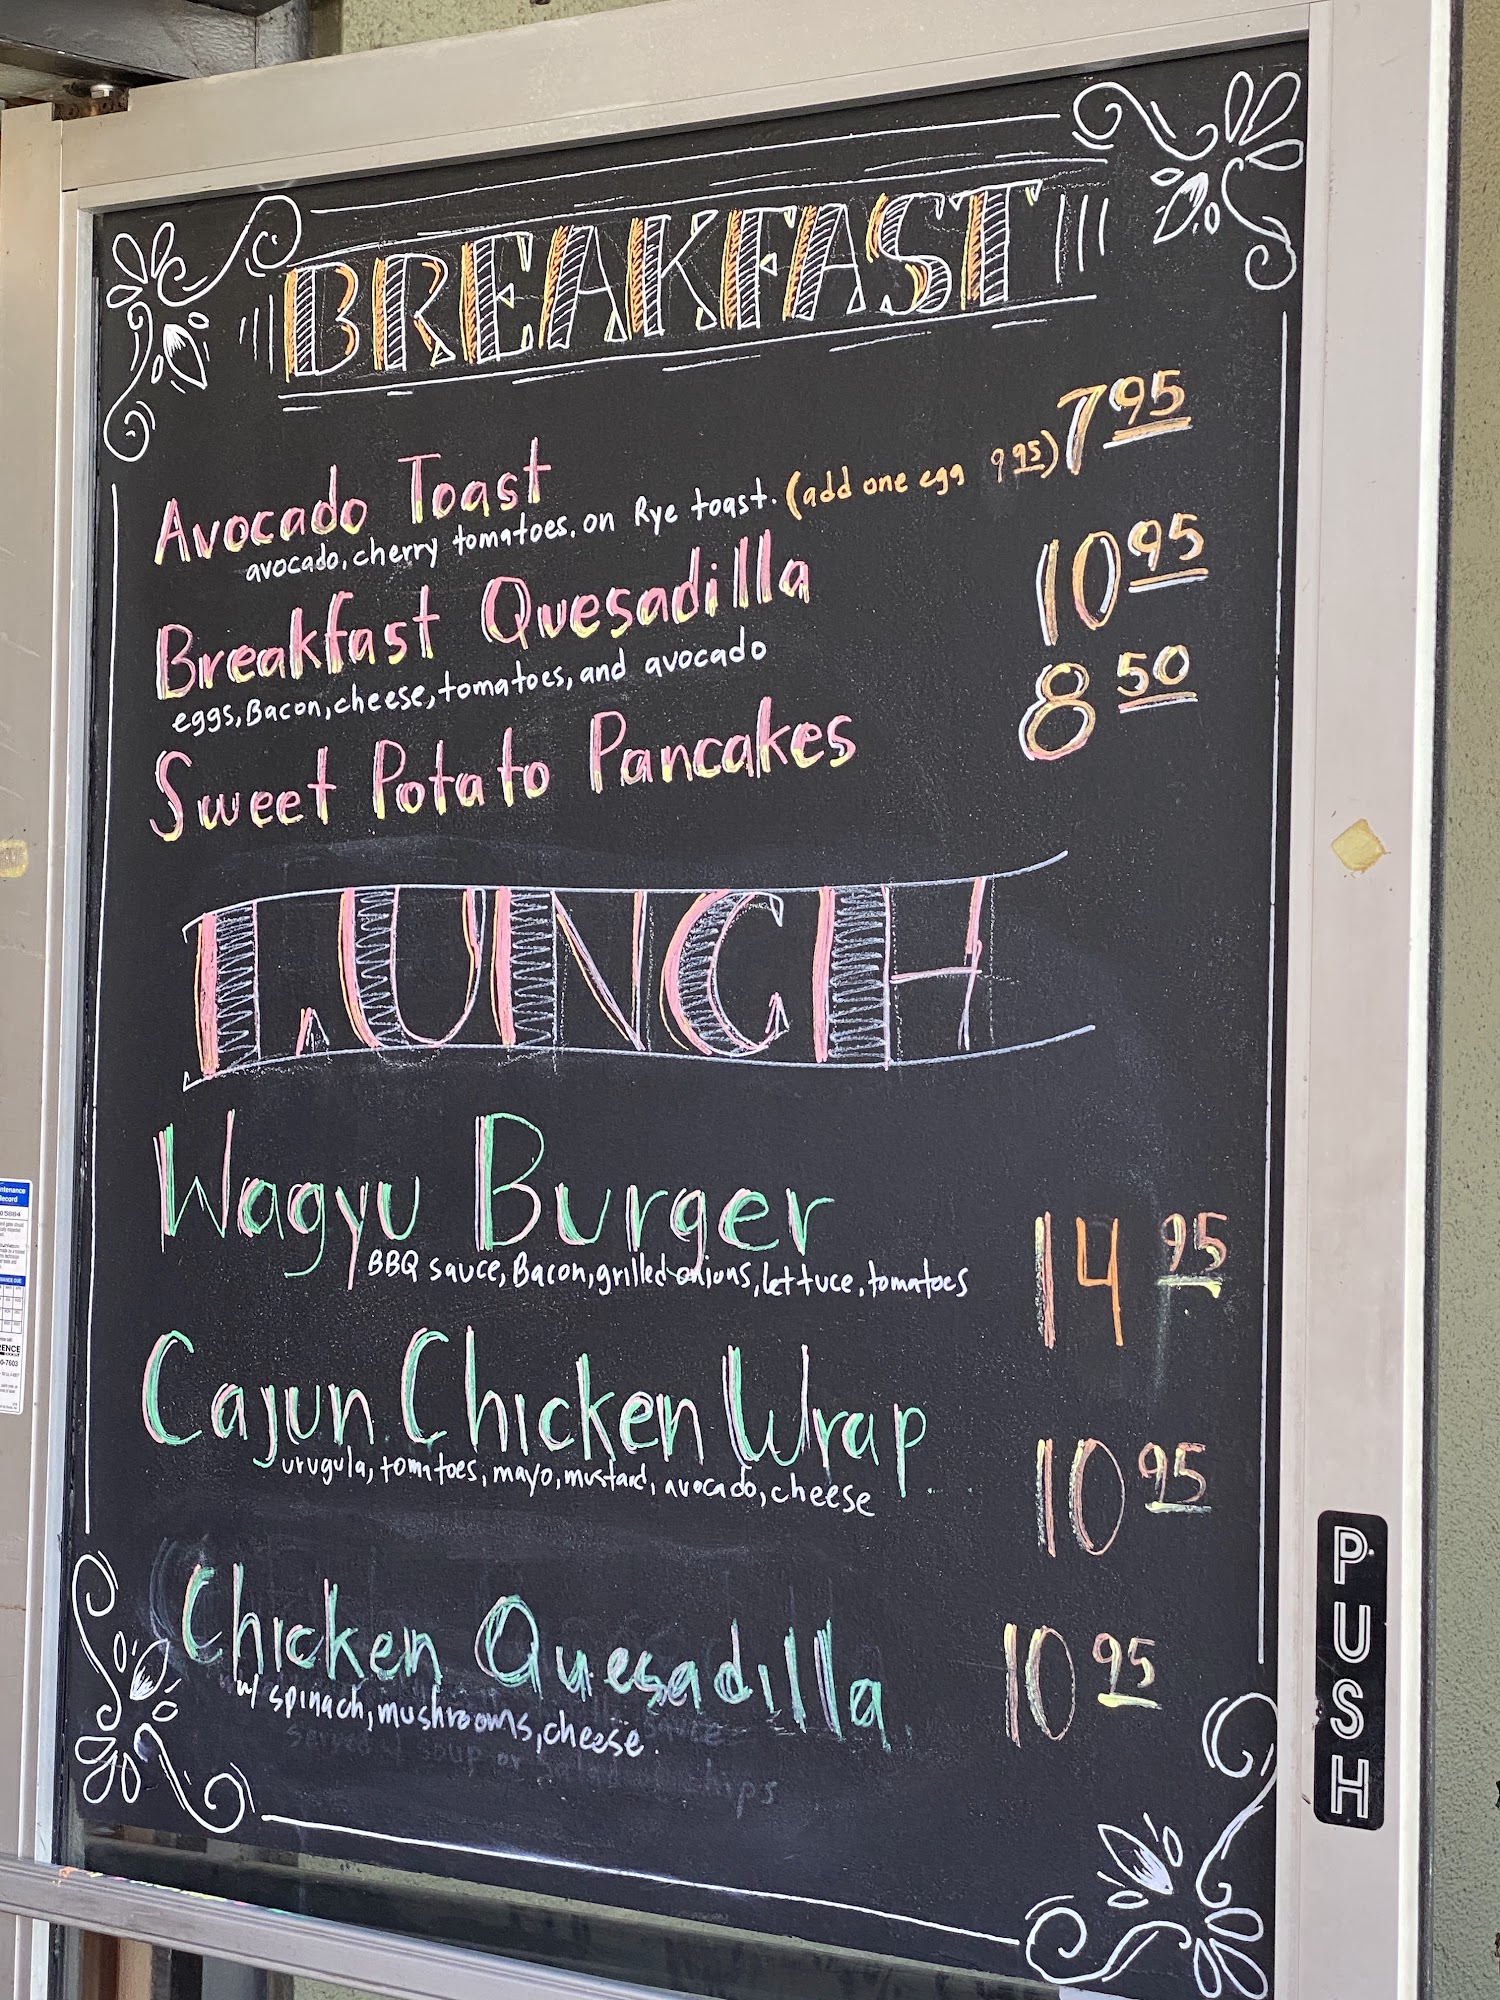 BREAKFAST
Avocado Toast 7 95
avocado, cherry tomatoes. on Rye toast. (add one egg 9 95)
Breakfast Quesadilla 10 95
eggs, Bacon, cheese, tomatoes, and avocado
Sweet Potato Pancakes 8 50
LUNCH
Wagyu Burger 14 95
BBQ sauce, Bacon, grilled onions, lettuce, tomatoes
Cajun Chicken Wrap 10 95
urugula, tomatoes, mayo, mustard, avocado, cheese
Chicken Quesadilla 10 95
w/ spinach, mushrooms, cheese.
soup or salad chips
PUSH